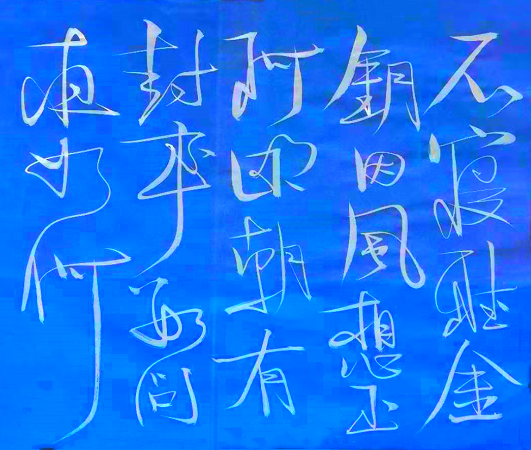 不寝聽金
鈅因風想玉
珂明朝有
封事数问
夜如何